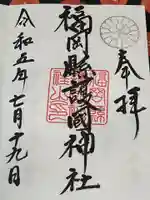 奉拝
福岡縣護國神社
令和五年七月十九日